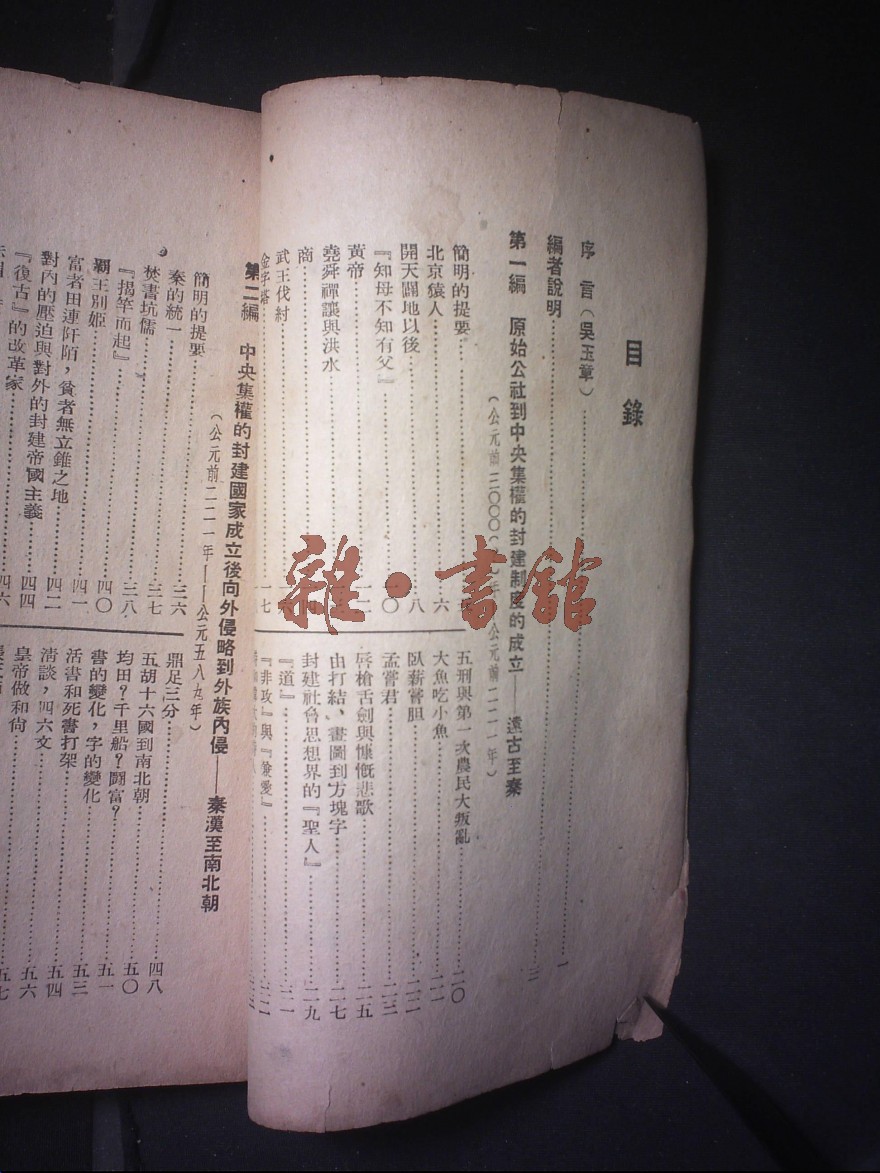 目錄
序言（吳玉章）……一
編者說明……三
第一編　原始公社到中央集權的封建制度的成立——遠古至秦
簡明的提要……
北京猿人……六
開天闢地以後……八
『知母不知有父』……一〇
黃帝……一二
堯舜禪讓與洪水
商……
武王伐紂……
金字塔……一七
五刑與第一次農民大叛亂……二〇
大魚吃小魚……二一
臥薪嘗胆……二二
孟嘗君……二三
唇槍舌劍與慷慨悲歌……二五
由打結、畫圖到方塊字……二七
封建社會思想界的『聖人』……二九
『道』……三一
『非攻』與『兼愛』……三二
第二編　中央集權的封建國家成立後向外侵略到外族內侵——秦漢至南北朝
（公元前二二一年——公元五八九年）
簡明的提要……三六
秦的統一……三七
焚書坑儒……三八
『揭竿而起』……四〇
霸王別姬……四一
富者田連阡陌，貧者無立錐之地……四二
對內的壓迫與對外的封建帝國主義……四四
『復古』的改革家……四六
鼎足三分……四八
五胡十六國到南北朝……五〇
均田？千里船？鬭富？……五一
書的變化，字的變化……五三
活書和死書打架……五四
清談，四六文……五六
皇帝做和尚……五七
雜·書館